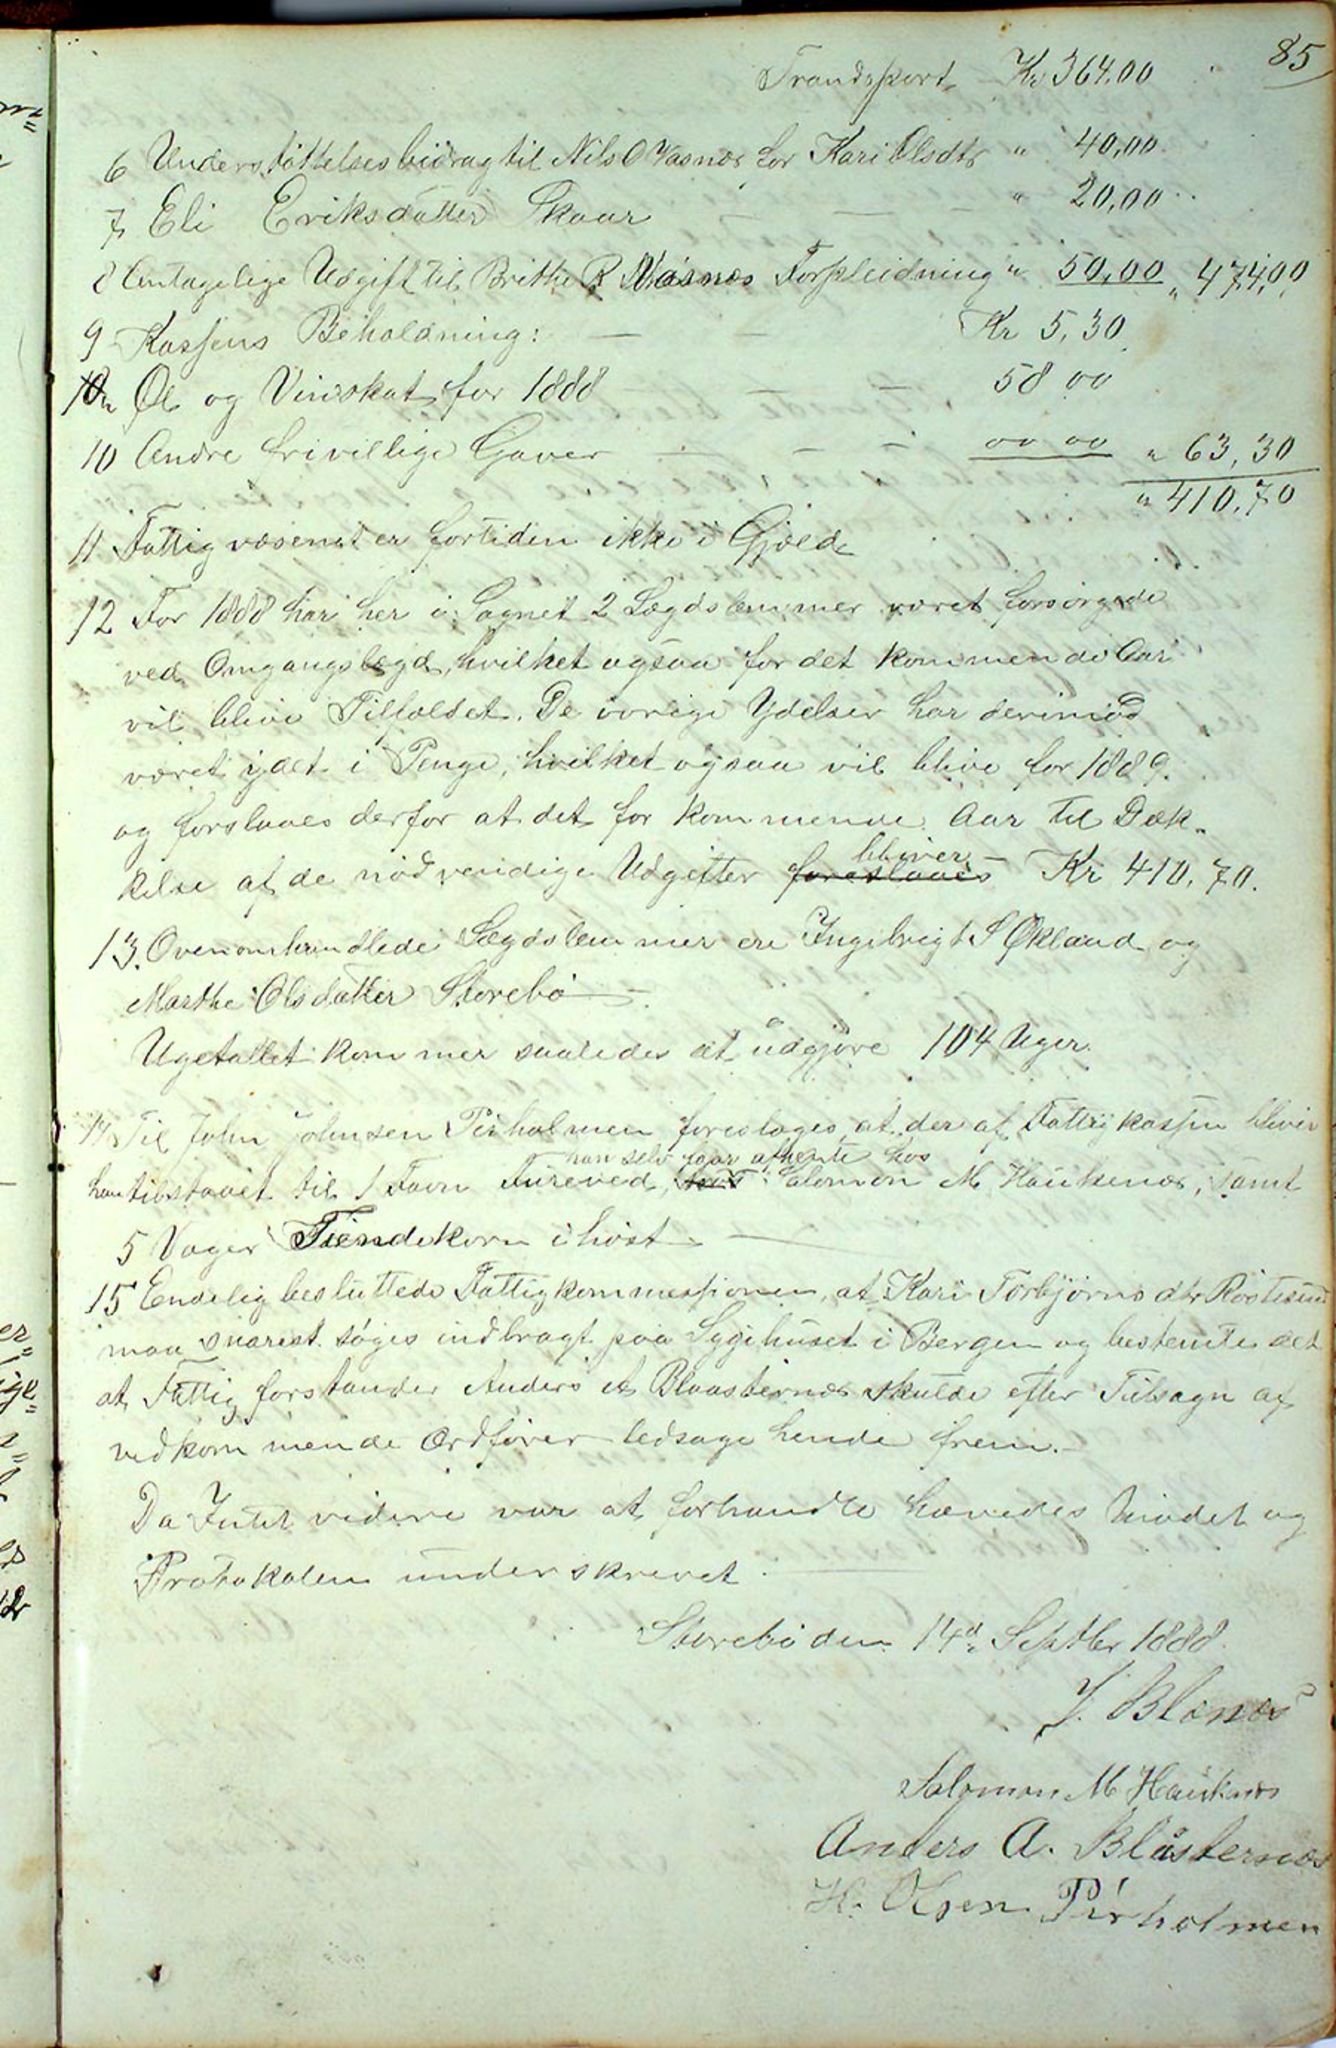 85
Trandsport Kr 364.00
6 Understøttelsesbidrag til Nils O Vasnæs for Kari Olsdtr " 40,00
7 Eli Eriksdatter Skaar — — " 20,00
8 Antagelige Udgift til Brithe R Vasnæs Forpleidning " 50,00 " 474,00
9 Kassens Beholdning: — — Kr 5,30
Øl og Vinskat for 1888 — — 58 00
10 Andre frivillige Gaver — — 00 00 " 63,30
" 410,70
11 Fattigvæsenet er fortiden ikke i Gjæld
12 For 1888 har her i Sognet 2 Lægdslemmer været forsørgede
ved Omgangslægd, hvilket ogsaa for det kommende Aar
vil blive Tilfældet. De øvrige Ydelser har derimod
været ydet i Penge, hvilket ogsaa vil blive for 1889.
og forslaaes derfor at det for kommende Aar til Dæk-
kelse af de nødvendige Udgifter foreslaaes bliver — Kr 410,70.
13. Ovenomhandlede Lægdslemmer ere Ingebrigt S Økland og
Marthe Olsdatter Storebø —
Ugetallet kommer saaledes at udgjøre 104 Uger.
14 Til John Johnsen Pirholmen foreslages at der af Fattigkassen bliver
han selv faar afhente hos
ham tilstaaet til 1 Favn Fureved, Salomon M Haukenæs, samt
5 Vager Tiendekorn i høst —
15 Endelig besluttede Fattigkommessionen, at Kari Torbjørnsdtr
maa snarest søges indbragt paa Sygehuset i Bergen og bestemte det
at Fattigforstander Anders A Blaasternæs skulde efter Tilsagn af
vedkommende Ordfører ledsage hende frem. —
Da Intet videre var at forhandle hævedes Mødet og
Protokolen underskrevet. —
Storebø den 14d Septbr 1888.
J. Blænæs
Salomon M Hauknæs
Anders A. Blåsternæs
H. Olsen Pirholmen